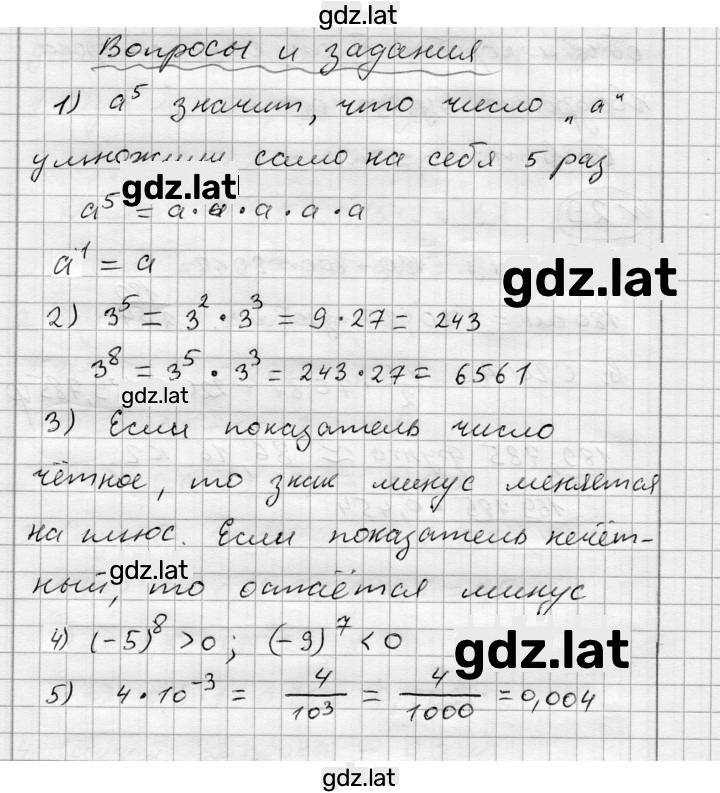 gdz.lat
Вопросы и задания
1) a⁵ значит, что число „a“
умножили само на себя 5 раз
gdz.lat
a⁵ = a · a · a · a · a
a¹ = a
gdz.lat
2) 3⁵ = 3² · 3³ = 9 · 27 = 243
3⁸ = 3⁵ · 3³ = 243 · 27 = 6561
gdz.lat
3) Если показатель число
чётное, то знак минус меняется
на плюс. Если показатель нечёт-
gdz.lat
ный, то остаётся минус
4) (-5)⁸ > 0 ; (-9)⁷ < 0
gdz.lat
5) 4 · 10⁻³ = 4/10³ = 4/1000 = 0,004
gdz.lat